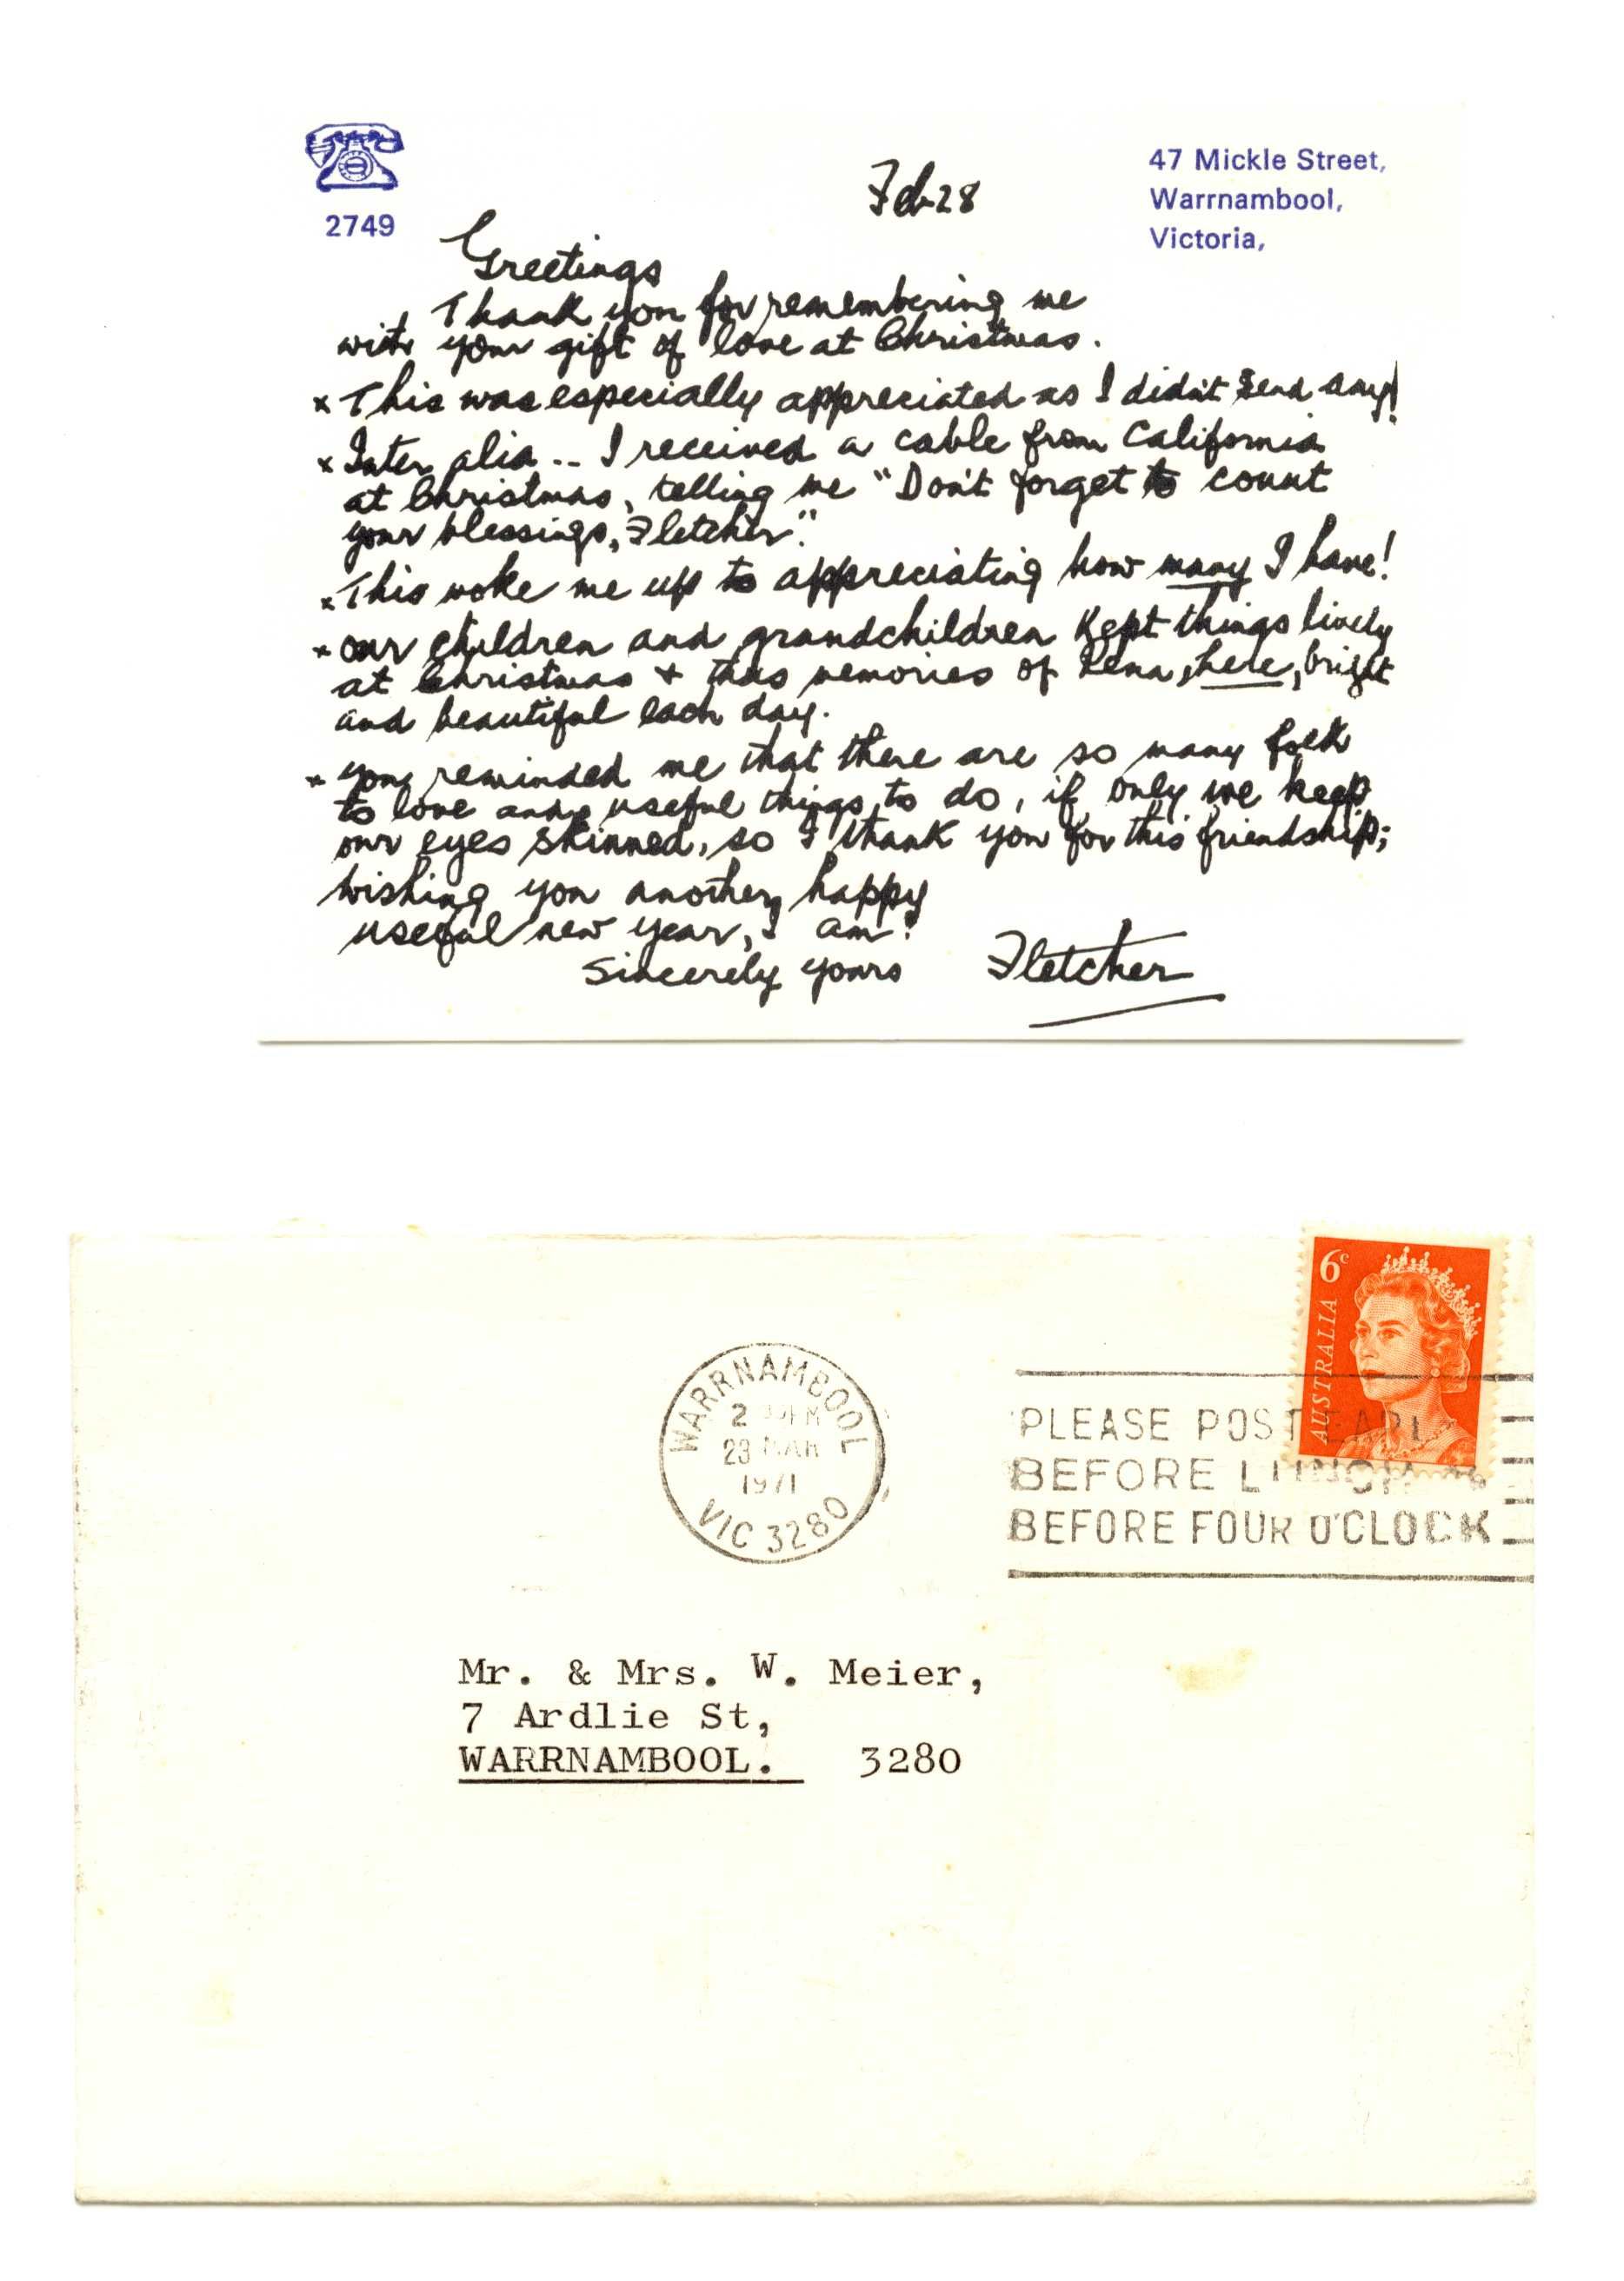 2749
Feb 28
47 Mickle Street,
Warrnambool,
Victoria,
Greetings
Thank you for remembering me
with your gift of love at Christmas.
x This was especially appreciated as I didn't send any!
x Inter alia -- I received a cable from California
at Christmas, telling me "Don't forget to count
your blessings, Fletcher".
x This woke me up to appreciating how many I have!
x our children and grandchildren kept things lively
at Christmas + thus memories of Rena, here, bright
and beautiful each day.
x you reminded me that there are so many folk
to love and useful things to do, if only we keep
our eyes skinned, so I thank you for this friendship;
wishing you another happy
useful new year, I am:
Sincerely yours Fletcher
6c
AUSTRALIA
WARRNAMBOOL
2 PM
23 MAR
1971
VIC 3280
PLEASE POST
BEFORE LUNCH
BEFORE FOUR O'CLOCK
Mr. & Mrs. W. Meier,
7 Ardlie St,
WARRNAMBOOL. 3280